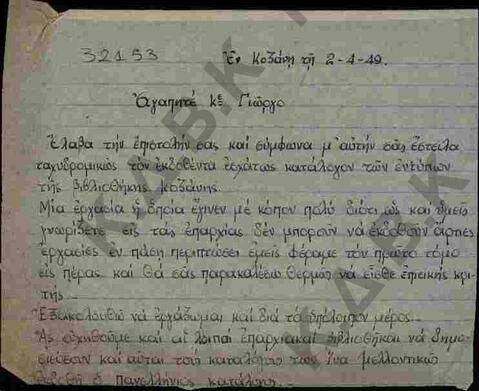 32153 Ἐν Κοζάνῃ τῇ 2-4-49.
Ἀγαπητέ κε Γιῶργο
Ἔλαβα τὴν ἐπιστολήν σας καὶ σύμφωνα μ' αὐτήν σᾶς ἔστειλα
ταχυδρομικῶς τὸν ἐκδοθέντα ἐσχάτως κατάλογον τῶν ἐντύπων
τῆς βιβλιοθήκης Κοζάνης.
Μία ἐργασία ἡ ὁποία ἔγινεν μὲ κόπον πολύ διότι ὡς καὶ ὑμεῖς
γνωρίζετε εἰς τὰς ἐπαρχίας δὲν μποροῦν νὰ ἐκδοθοῦν ἄρτιες
ἐργασίες ἐν πάσῃ περιπτώσει ἐμεῖς φέραμε τὸν πρῶτο τόμο
εἰς πέρας. καὶ θὰ σᾶς παρακαλέσω θερμῶς νὰ εἶσθε ἐπιεικὴς κρι
τής -
Ἐξακολουθῶ νὰ ἐργάζωμαι καὶ διὰ τὸ ὑπόλοιπον μέρος.
Ἂς εὐχηθοῦμε καὶ αἱ λοιπαὶ ἐπαρχιακαὶ βιβλιοθῆκαι νὰ δημο
σιεύσουν καὶ αὐταὶ τοὺς καταλόγους των ἵνα μελλοντικῶς
ἐκδοθῇ ὁ πανελλήνιος κατάλογος.
ΚΔΒΚ